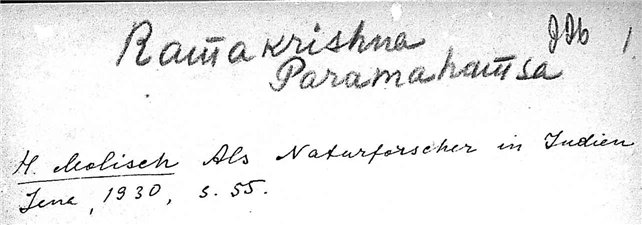 Ram̄akrishna 1
Paramaham̄sa
H. Molisch Als Naturforscher in Indien
Jena, 1930, S. 55.